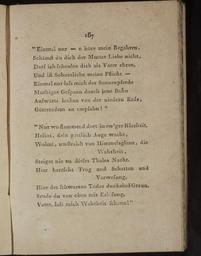 167
"Einmal nur — o höre mein Begehren,
Schämst du dich der Mutter Liebe nicht,
Darf ich schonden dich als Vater ehren,
Und ist Sohnesliebe meine Pflicht —
Einmal nur laß mich der Sonnenpferde
Muthiger Gespann durch jene Bahn
Aufwärts lenken von der niedern Erde,
Götterstrom zu empfahn!"
"Nur wo flammend dort in ew'ger Klarheit,
Helios, dein göttlich Auge wacht,
Wohnt, umstralt von Himmelsglanz, die
Wahrheit,
Steiget nie zu dieses Thales Nacht.
Hier herrscht Trug und Schatten und
Verwesung,
Hier des schwarzen Todes
Sende du von oben mir Erlösung,
Vater, laß mich Wahrheit schaun!"